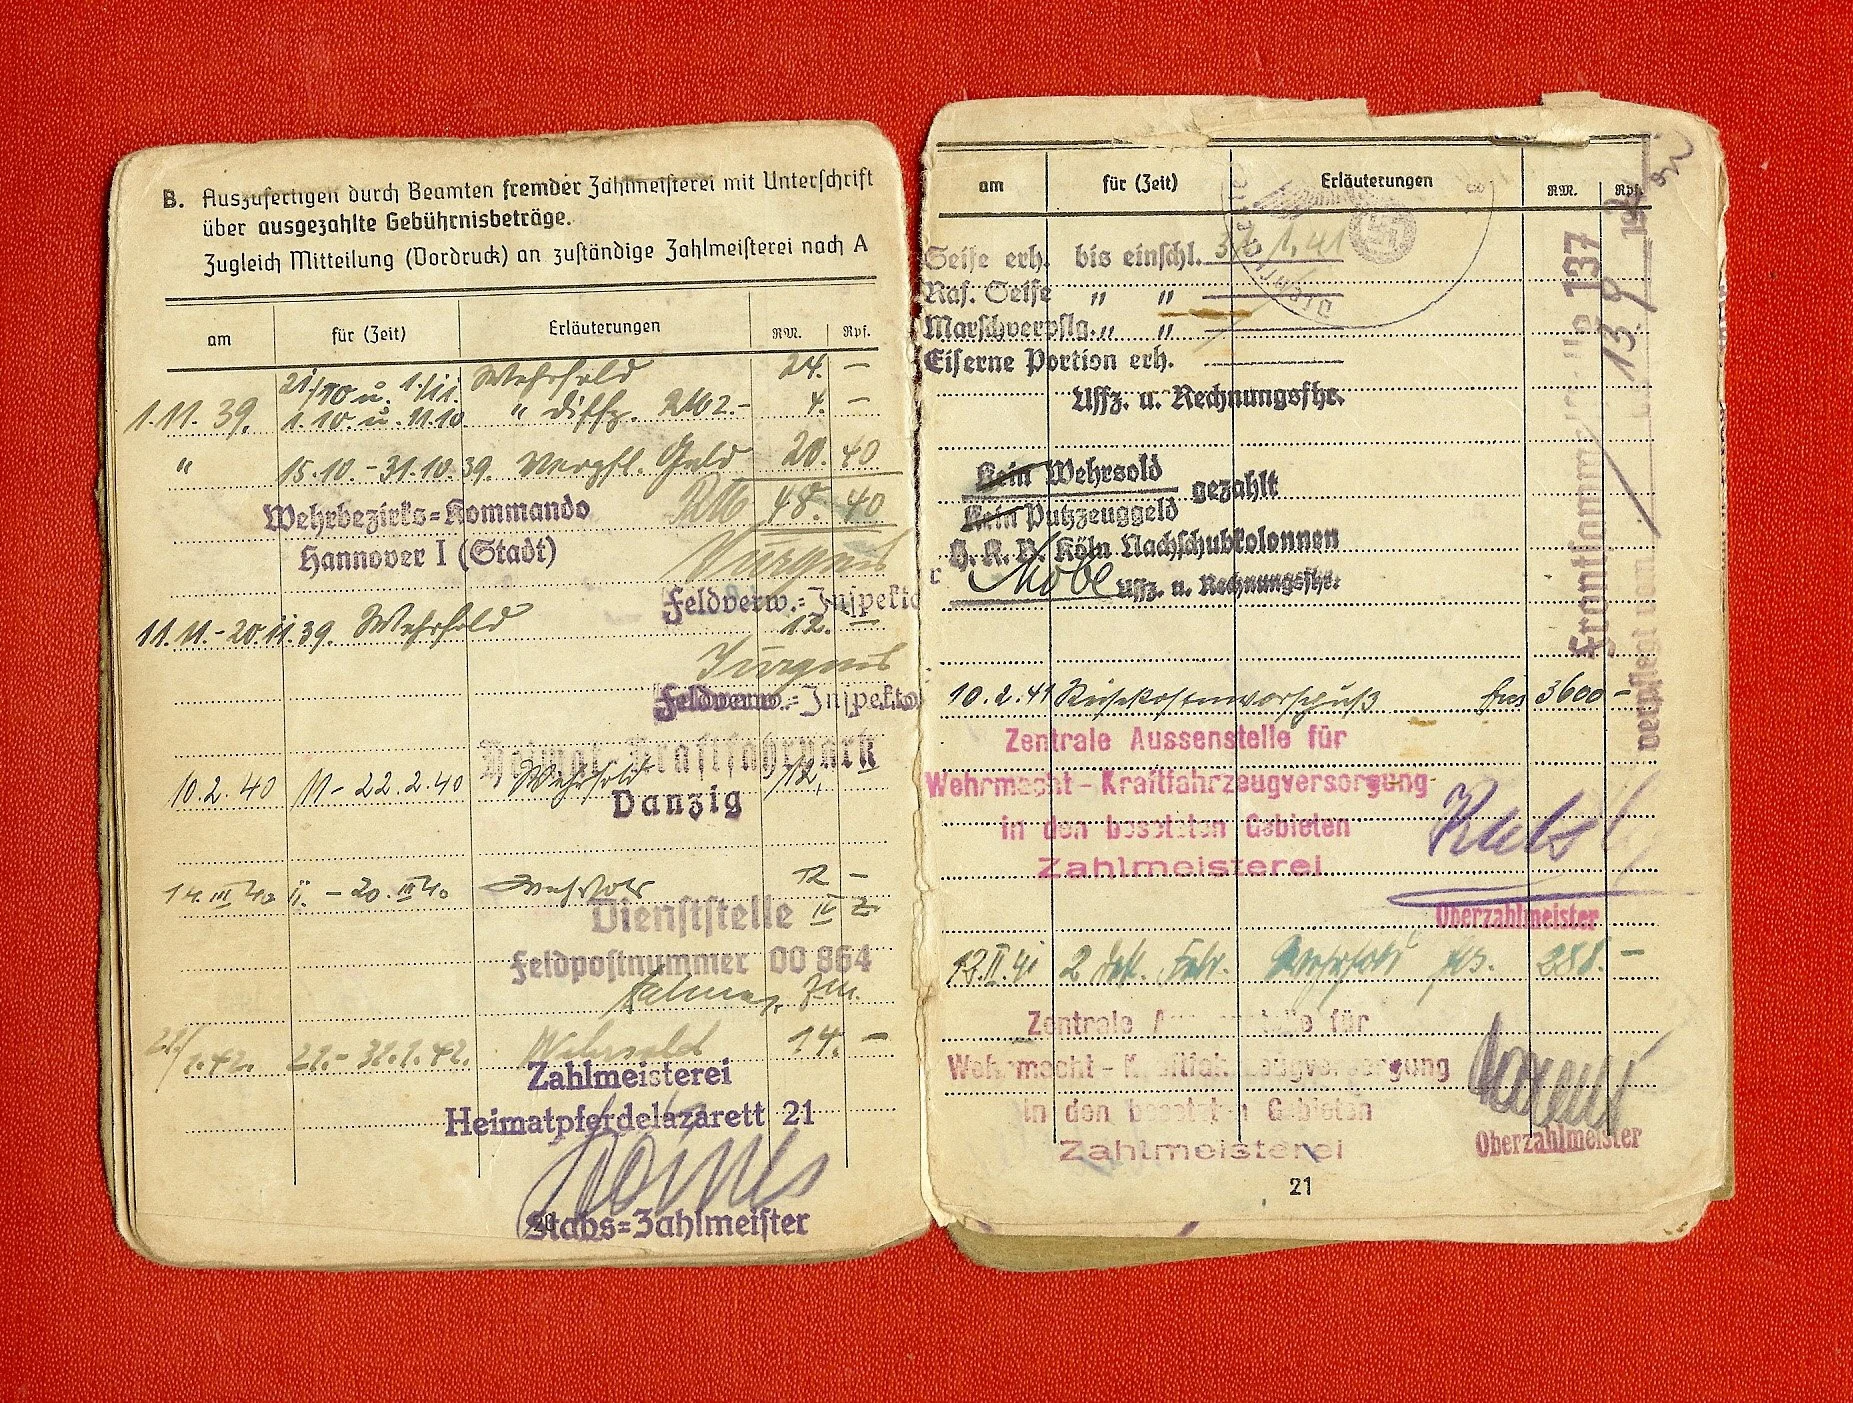 B. Auszufertigen durch Beamten fremder Zahlmeisterei mit Unterschrift
über ausgezahlte Gebührnisbeträge.
Zugleich Mitteilung (Vordruck) an zuständige Zahlmeisterei nach A
am für (Zeit) Erläuterungen RM. Rpf.
21/10 u. 1./11. Wehrsold 24. —
1.11.39. 1.10 u. 11.10. " 4. —
" 15.10. - 31.10.39. Verpfl. Geld 20. 40
Wehrbezirks=Kommando RM 48. 40
Hannover I (Stadt)
Feldverw.=Inspekto
11.11. - 20.11.39. Wehrsold 12. —
Feldverw.=Inspekto
Heimat Kraftfahrpark
10.2.40 11 - 22.2.40 Wehrsold 12,
Danzig
14.III 40 11. - 20.III 40 Wehrsold 12 —
Dienststelle
Feldpostnummer 00 864
1.42. 21. - 31.1.42. Wehrsold 14. —
Zahlmeisterei
Heimatpferdelazarett 21
Stabs=Zahlmeister
20
am für (Zeit) Erläuterungen RM. Rpf.
Seife erh. bis einschl. 31.1.41
Ras. Seife " "
Marschverpflg. " "
Eiserne Portion erh.
Uffz. u. Rechnungsfhr.
Kein Wehrsold
gezahlt
Kein Putzzeuggeld
H. K. P. Köln Nachschubkolonnen
Uffz. u. Rechnungsfhr.
10.2.41 Reisekostenvorschuß frs 3600 —
Zentrale Aussenstelle für
Wehrmacht-Kraftfahrzeugversorgung
in den besetzten Gebieten
Zahlmeisterei
Oberzahlmeister
12.II.41 2 Dek. Febr. Wehrsold frs. 288. —
Zentrale Aussenstelle für
Wehrmacht-Kraftfahrzeugversorgung
in den besetzten Gebieten
Zahlmeisterei
Oberzahlmeister
21
Frontsammelstelle 137
verpflegt vom